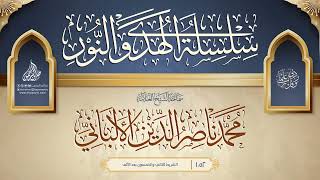 سلسلة الهدى والنور
سماحة الشيخ العلامة
محمد ناصر الدين الألباني
١٠٥٢
الشريط الثاني والخمسون بعد الألف